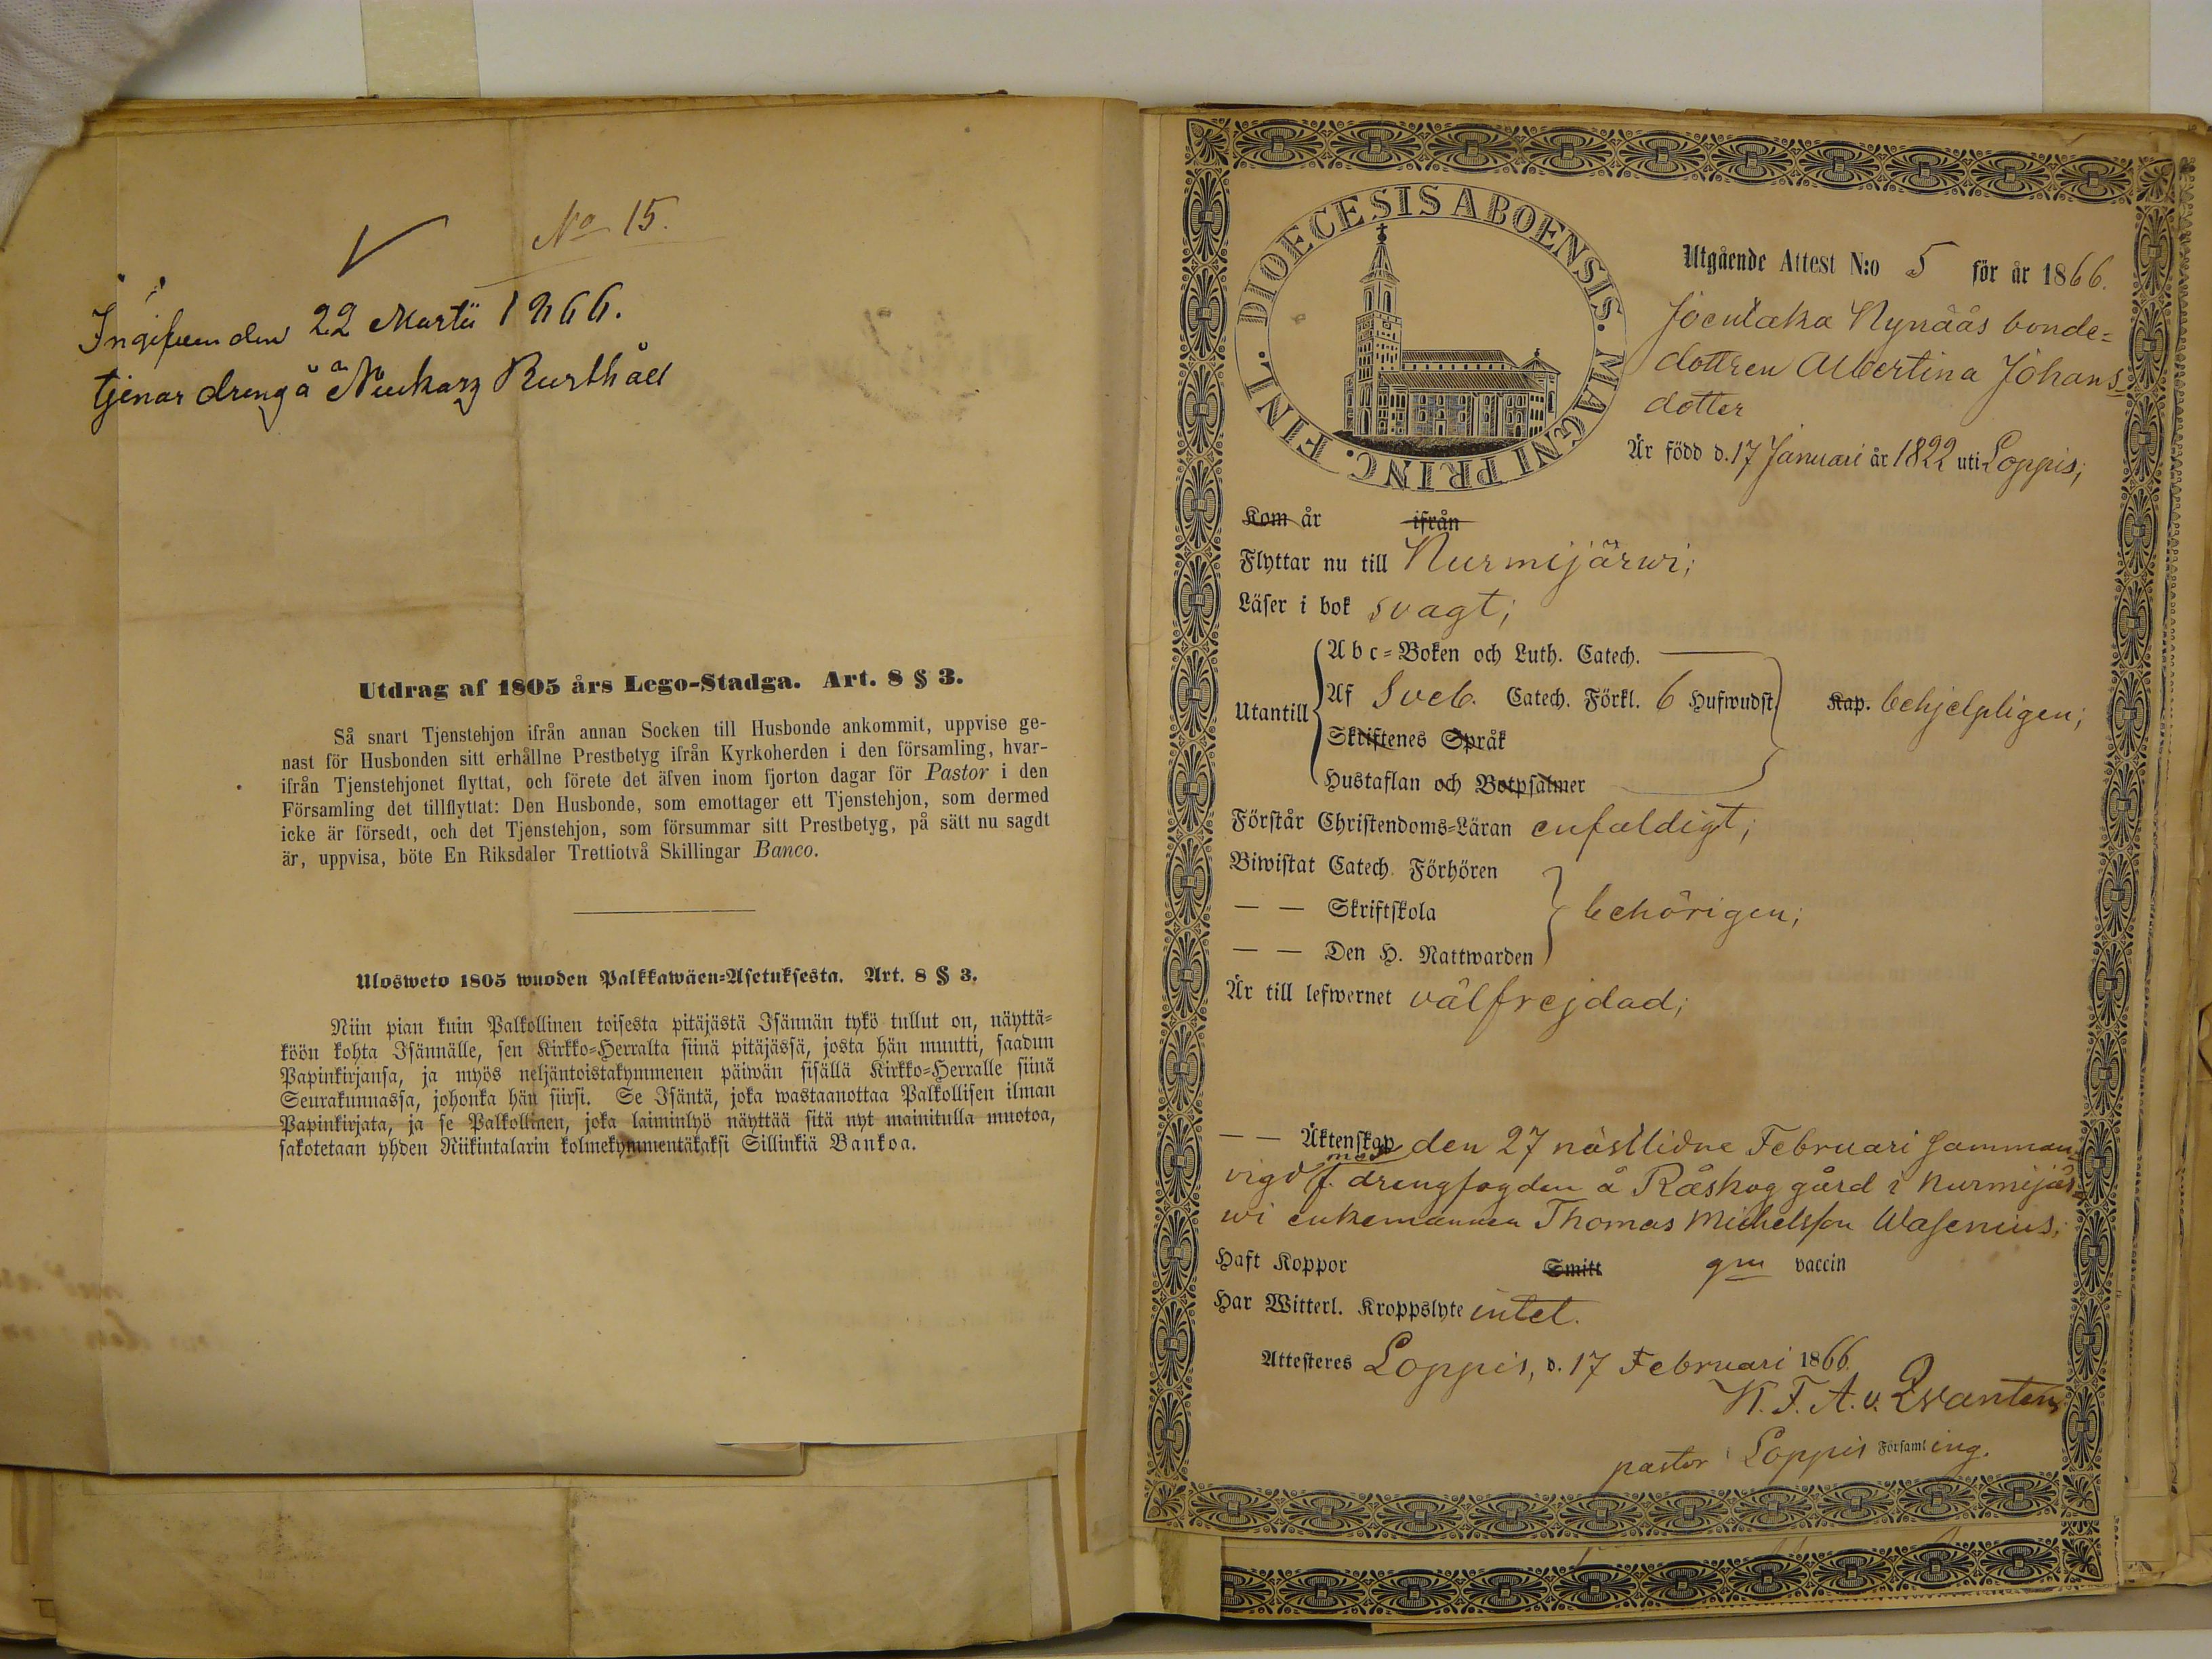 No 15.
Ingifven den 22 Martii 1866.
tjenar dreng å Nuckarz Rusthåll
Utdrag af 1805 års Lego-Stadga. Art. 8 § 3.
Så snart Tjenstehjon ifrån annan Socken till Husbonde ankommit, uppvise ge-
nast för Husbonden sitt erhållne Prestbetyg ifrån Kyrkoherden i den församling, hvar-
ifrån Tjenstehjonet flyttat, och förete det äfven inom fjorton dagar för Pastor i den
Församling det tillflyttat: Den Husbonde, som emottager ett Tjenstehjon, som dermed
icke är försedt, och det Tjenstehjon, som försummar sitt Prestbetyg, på sätt nu sagdt
är, uppvisa, böte En Riksdaler Trettiotvå Skillingar Banco.
Ulosweto 1805 wuoden Palkkawäen-Asetuksesta. Art. 8 § 3.
Niin pian kuin Palkollinen toisesta pitäjästä Isännän tykö tullut on, näyttä-
köön kohta Isännälle, sen Kirkko-Herralta siinä pitäjässä, josta hän muutti, saadun
Papinkirjansa, ja myös neljäntoistakymmenen päiwän sisällä Kirkko-Herralle siinä
Seurakunnassa, johonka hän siirsi. Se Isäntä, joka wastaanottaa Palkollisen ilman
Papinkirjata, ja se Palkollinen, joka laiminlyö näyttää sitä nyt mainitulla muotoa,
sakotetaan yhden Riikintalarin kolmekymmentäkaksi Sillinkiä Bankoa.
DIOECESIS ABOENSIS. MAGNI PRINC. FINL.
Utgående Attest N:o 5 för år 1866.
Joentaka Nynääs bonde-
dottren Albertina Johans-
dotter
Är född d. 17 Januari år 1822 uti Loppis;
Kom år ifrån
Flyttar nu till Nurmijärwi;
Läser i bok svagt;
Utantill
Abc-Boken och Luth. Catech.
Af Sveb. Catech. Förkl. 6 Hufwudst. Kap. behjelpligen;
Skriftenes Språk
Hustaflan och Botpsalmer
Förstår Christendoms-Läran enfaldigt;
Biwistat Catech. Förhören
— — Skriftskola behörigen;
— — Den H. Nattwarden
Är till lefwernet välfrejdad;
— — Äktenskap den 27 nästlidne Februari samman-
vigd med f. drengfogden å Råskog gård i Nurmijär-
wi enkemannen Thomas Michelsson Wasenius;
Haft Koppor Smitt gm vaccin
Har Witterl. Kroppslyte intet.
Attesteres Loppis, d. 17 Februari 1866.
K. F. A. v. Qvanten
pastor i Loppis Församling.